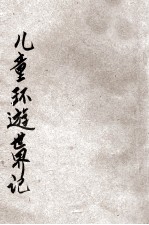 儿童环遊世界记